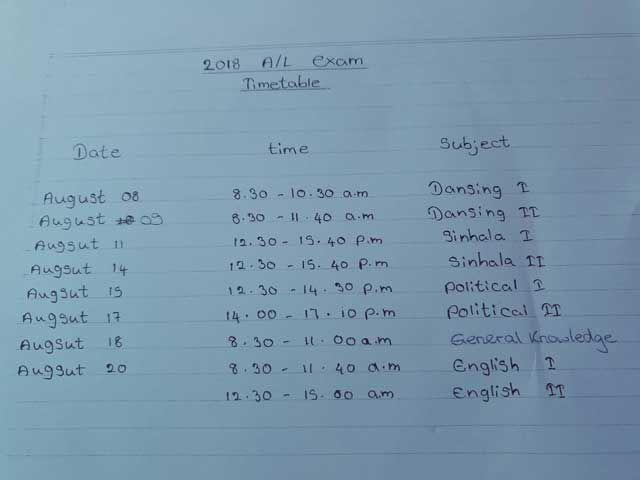 2018 A/L exam
Timetable
Date time Subject
August 08 8.30 - 10.30 a.m Dansing I
August 09 8.30 - 11.40 a.m Dansing II
Augsut 11 12.30 - 15.40 p.m Sinhala I
Augsut 14 12.30 - 15.40 p.m Sinhala II
Augsut 15 12.30 - 14.30 p.m Political I
Augsut 17 14.00 - 17.10 p.m Political II
Augsut 18 8.30 - 11.00 a.m General Knowledge
Augsut 20 8.30 - 11.40 a.m English I
12.30 - 15.00 am English II